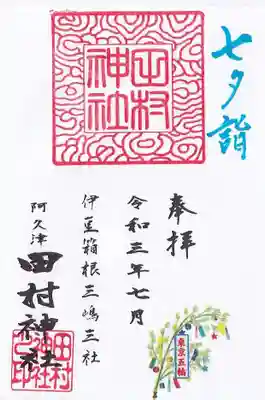 七夕詣
奉拝
田村神社
令和三年七月
伊豆箱根三嶋三社
阿久津
田村神社
東京五輪